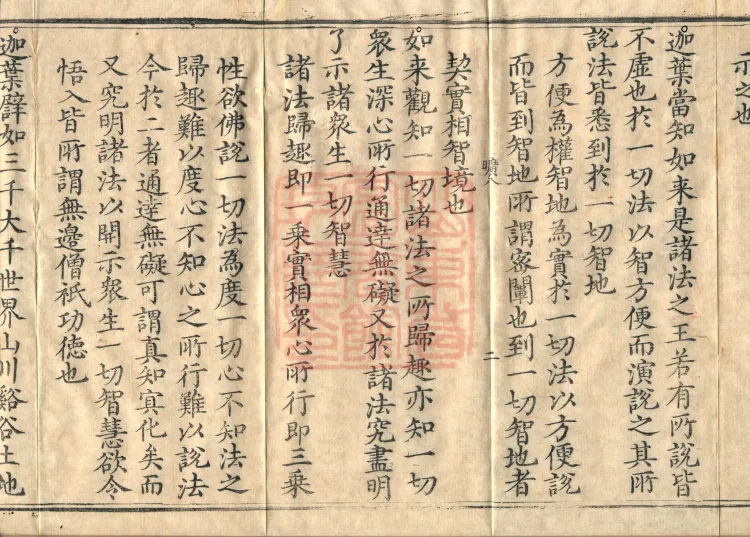 示之也
迦葉當知如来是諸法之王若有所說皆
不虛也於一切法以智方便而演說之其所
說法皆悉到於一切智地
方便為權智地為實於一切法以方便說
而皆到智地所謂密闡也到一切智地者
契實相智境也
如来觀知一切諸法之所歸趣亦知一切
衆生深心所行通達無礙又於諸法究盡明
了示諸衆生一切智慧
諸法歸趣即一乗實相衆心所行即三乗
性欲佛說一切法為度一切心不知法之
歸趣難以度心不知心之所行難以說法
今於二者通達無礙可謂真知冥化矣而
又究明諸法以開示衆生一切智慧欲令
悟入皆所謂無邊僧祇功徳也
迦葉譬如三千大千世界山川谿谷土地